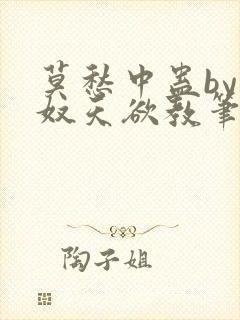 莫愁中蛊by
奴天欲教笔
陶子姐